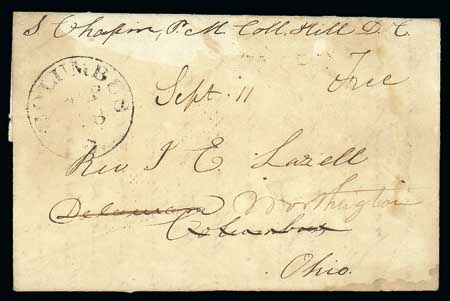 S. Chapin, P. M. Coll. Hill D. C.
Free
COLUMBUS
Sept. 11
Rev. J E. Lazell
Delaware Worthington
Columbus
Ohio.